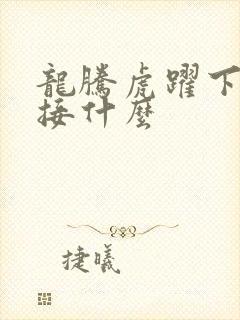 龍騰虎躍下
接什麼
捷曦